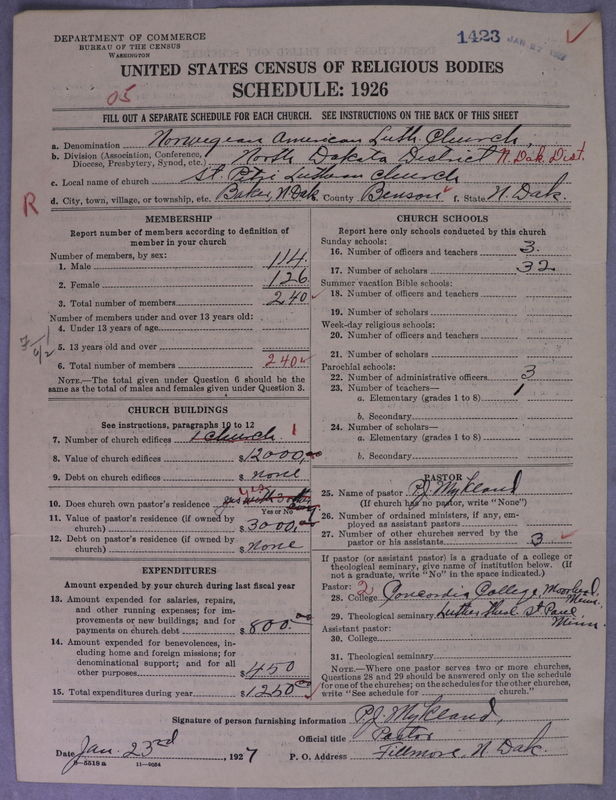 DEPARTMENT OF COMMERCE
BUREAU OF THE CENSUS
WASHINGTON
1423 JAN 27 1927
UNITED STATES CENSUS OF RELIGIOUS BODIES
SCHEDULE: 1926
05
FILL OUT A SEPARATE SCHEDULE FOR EACH CHURCH. SEE INSTRUCTIONS ON THE BACK OF THIS SHEET
a. Denomination Norwegian American Luth Church,
b. Division (Association, Conference, Diocese, Presbytery, Synod, etc.) North Dakota District N. Dak. Dist.
c. Local name of church St. Petri Lutheran Church
d. City, town, village, or township, etc. Baker, N. Dak. County Benson f. State N. Dak.
R
MEMBERSHIP
Report number of members according to definition of
member in your church
Number of members, by sex:
1. Male 114
2. Female 126
3. Total number of members 240
Number of members under and over 13 years old:
4. Under 13 years of age
5. 13 years old and over
6. Total number of members 240
NOTE.—The total given under Question 6 should be the
same as the total of males and females given under Question 3.
CHURCH BUILDINGS
See instructions, paragraphs 10 to 12
7. Number of church edifices 1 church 1
8. Value of church edifices $ 12000.00
9. Debt on church edifices $ none
10. Does church own pastor's residence yes
Yes or No
11. Value of pastor's residence (if owned by
church) $ 3000.00
12. Debt on pastor's residence (if owned by
church) $ None
EXPENDITURES
Amount expended by your church during last fiscal year
13. Amount expended for salaries, repairs,
and other running expenses; for im-
provements or new buildings; and for
payments on church debt $ 800.00
14. Amount expended for benevolences, in-
cluding home and foreign missions; for
denominational support; and for all
other purposes $ 450
15. Total expenditures during year $ 1250.00
CHURCH SCHOOLS
Report here only schools conducted by this church
Sunday schools:
16. Number of officers and teachers 3
17. Number of scholars 32
Summer vacation Bible schools:
18. Number of officers and teachers
19. Number of scholars
Week-day religious schools:
20. Number of officers and teachers
21. Number of scholars
Parochial schools:
22. Number of administrative officers 3
23. Number of teachers—
a. Elementary (grades 1 to 8) 1
b. Secondary
24. Number of scholars—
a. Elementary (grades 1 to 8)
b. Secondary
PASTOR
25. Name of pastor P.J. Mykland
(If church has no pastor, write "None")
26. Number of ordained ministers, if any, em-
ployed as assistant pastors
27. Number of other churches served by the
pastor or his assistants 3
If pastor (or assistant pastor) is a graduate of a college or
theological seminary, give name of institution below. (If
not a graduate, write "No" in the space indicated.)
Pastor: 2
28. College Concordia College, Moorhead, Minn.
29. Theological seminary Luther Theol. St. Paul Minn.
Assistant pastor:
30. College
31. Theological seminary
NOTE.—Where one pastor serves two or more churches,
Questions 28 and 29 should be answered only on the schedule
for one of the churches; on the schedules for the other churches,
write "See schedule for church."
Signature of person furnishing information P.J. Mykland,
Official title Pastor
Date Jan. 23rd, 1927 P. O. Address Fillmore, N Dak.
8-5518a 11-9064